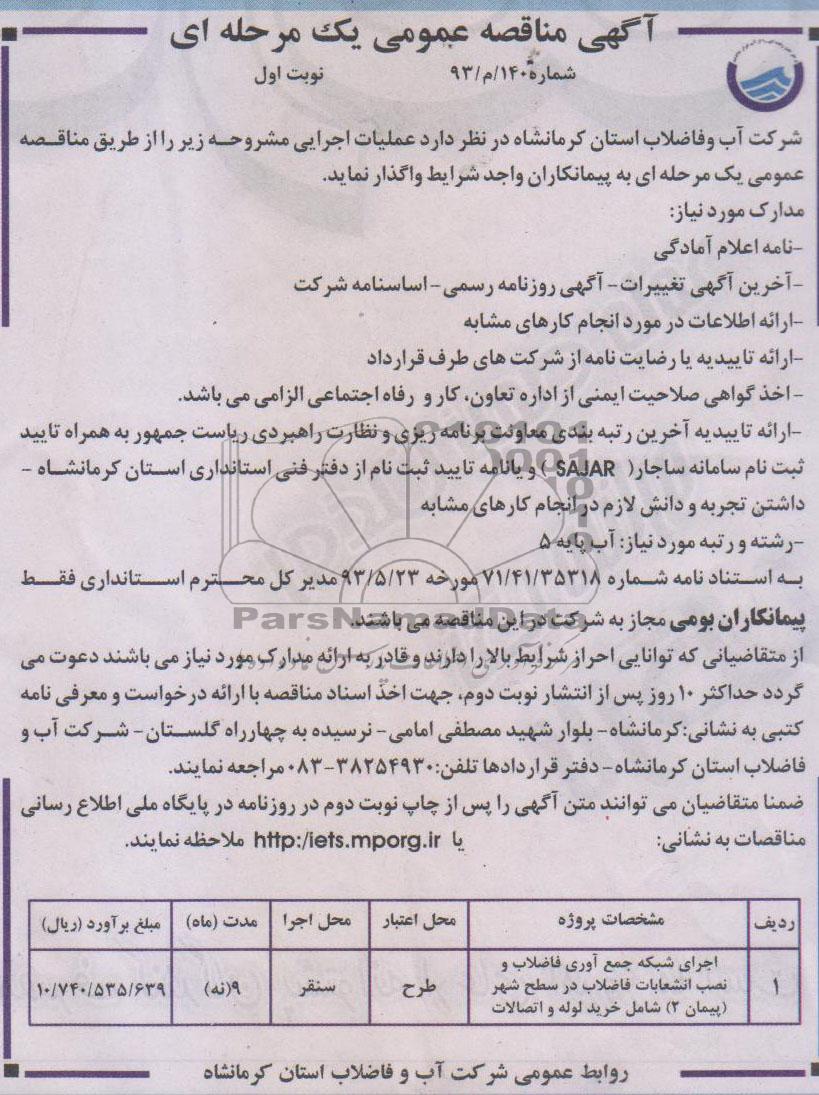 آگهی مناقصه عمومی یک مرحله ای
شماره۱۴۰/م/۹۳ نوبت اول
شرکت آب وفاضلاب استان کرمانشاه در نظر دارد عملیات اجرایی مشروحه زیر را از طریق مناقصه
عمومی یک مرحله ای به پیمانکاران واجد شرایط واگذار نماید.
مدارک مورد نیاز:
-نامه اعلام آمادگی
-آخرین آگهی تغییرات- آگهی روزنامه رسمی- اساسنامه شرکت
-ارائه اطلاعات در مورد انجام کارهای مشابه
-ارائه تاییدیه یا رضایت نامه از شرکت های طرف قرارداد
- اخذ گواهی صلاحیت ایمنی از اداره تعاون، کار و رفاه اجتماعی الزامی می باشد.
-ارائه تاییدیه آخرین رتبه بندی معاونت برنامه ریزی و نظارت راهبردی ریاست جمهور به همراه تایید
ثبت نام سامانه ساجار( SAJAR ) و یا نامه تایید ثبت نام از دفتر فنی استانداری استان کرمانشاه -
داشتن تجربه و دانش لازم در انجام کارهای مشابه
-رشته و رتبه مورد نیاز: آب پایه ۵
به استناد نامه شماره ۷۱/۴۱/۳۵۳۱۸ مورخه ۹۳/۵/۲۳ مدیر کل محترم استانداری فقط
پیمانکاران بومی مجاز به شرکت در این مناقصه می باشند.
ParsNamadData
از متقاضیانی که توانایی احراز شرایط بالا را دارند و قادر به ارائه مدارک مورد نیاز می باشند دعوت می
گردد حداکثر ۱۰ روز پس از انتشار نوبت دوم، جهت اخذ اسناد مناقصه با ارائه درخواست و معرفی نامه
کتبی به نشانی:کرمانشاه- بلوار شهید مصطفی امامی- نرسیده به چهارراه گلستان- شرکت آب و
فاضلاب استان کرمانشاه- دفتر قراردادها تلفن:۳۸۲۵۴۹۳۰-۰۸۳ مراجعه نمایند.
ضمنا متقاضیان می توانند متن آگهی را پس از چاپ نوبت دوم در روزنامه در پایگاه ملی اطلاع رسانی
مناقصات به نشانی: یا http:/iets.mporg.ir ملاحظه نمایند.
ردیف مشخصات پروژه محل اعتبار محل اجرا مدت (ماه) مبلغ برآورد (ریال)
۱ اجرای شبکه جمع آوری فاضلاب و
نصب انشعابات فاضلاب در سطح شهر
(پیمان ۲) شامل خرید لوله و اتصالات
طرح سنقر ۹(نه) ۱۰/۷۴۰/۵۳۵/۶۳۹
روابط عمومی شرکت آب و فاضلاب استان کرمانشاه